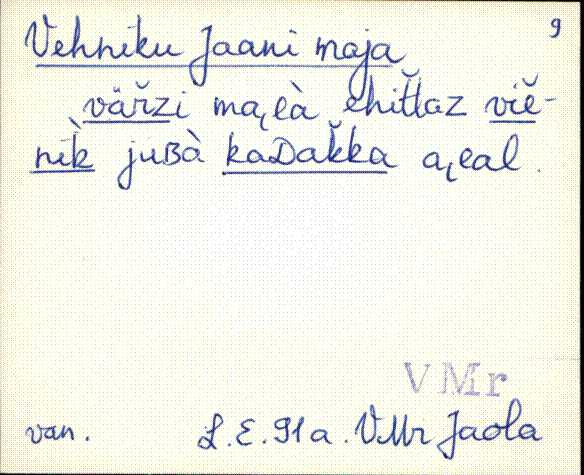 9
Vehniku Jaani maja
väřzi ma̭là ehit̆taz viĕ-
nìk juʙà kaᴅak̆ka a̭lal.
VMr
van. L.E. 91 a. VMr Jaola